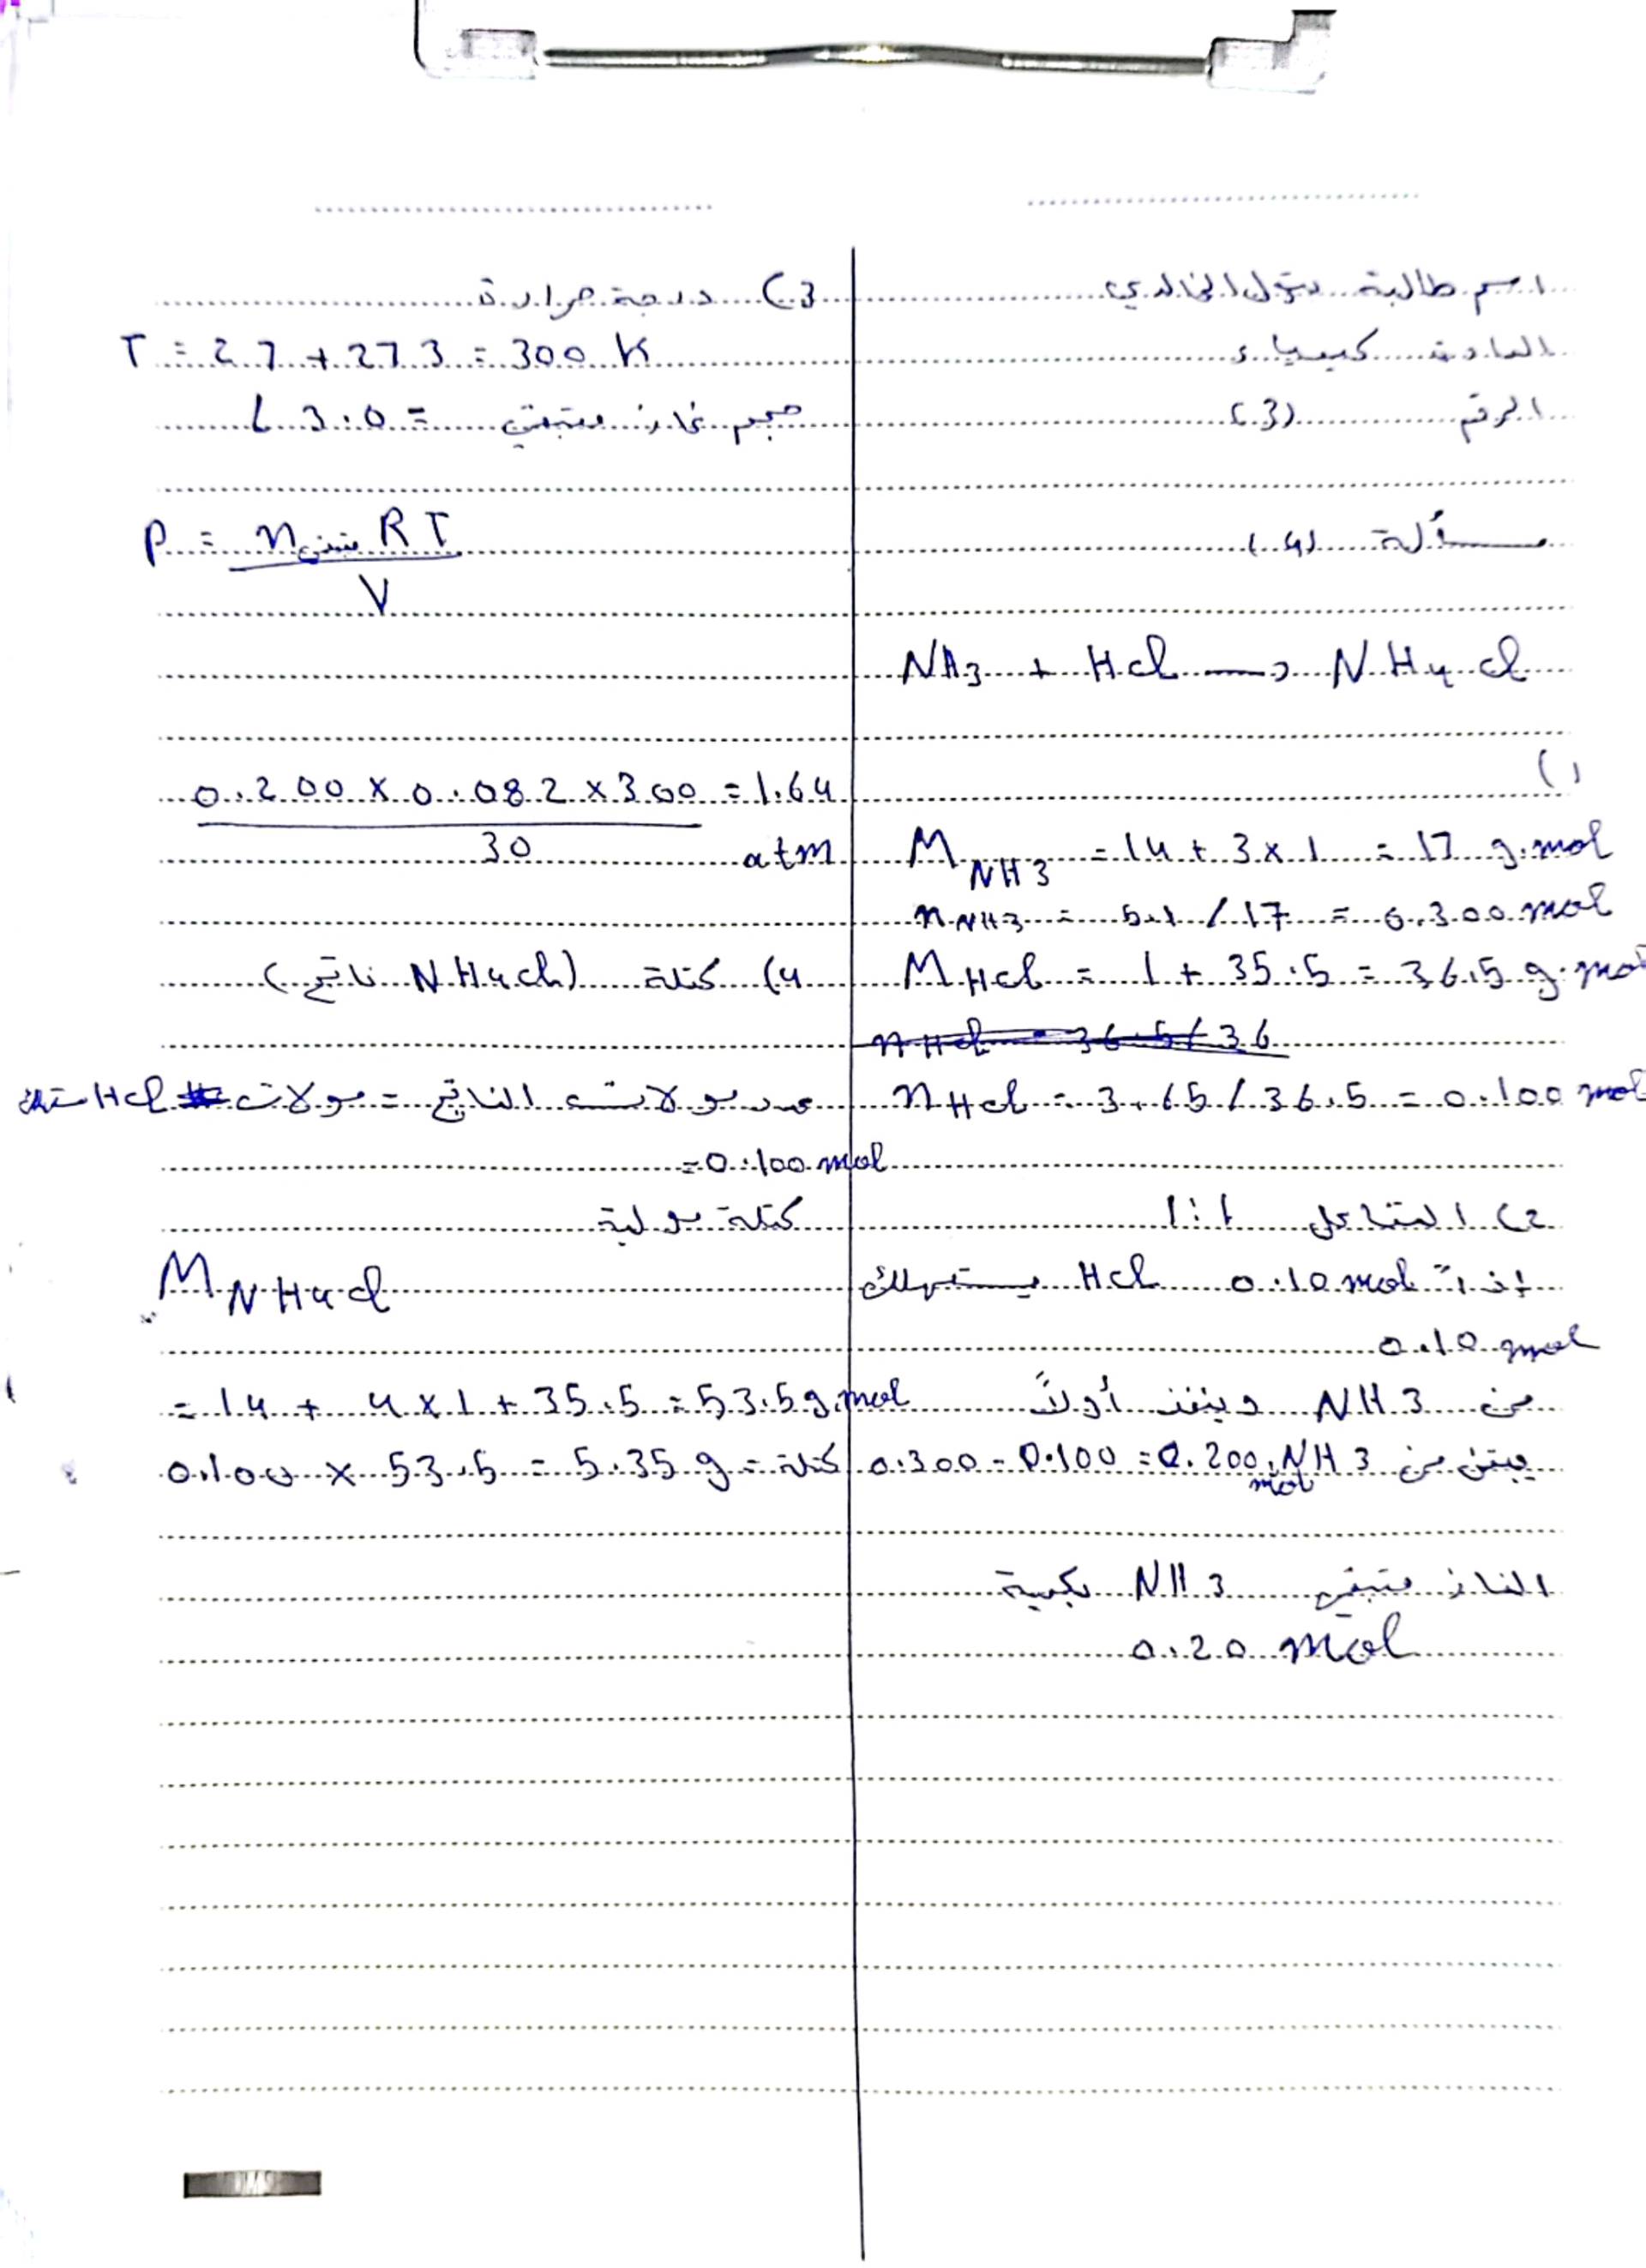 اسم طالبة بتول الخالدي
المادة كيمياء
الرقم (3)
مسألة (4)
NH3 + HCl → NH4Cl
(1
M NH3 = 14 + 3 x 1 = 17 g.mol
n NH3 = 5.1 / 17 = 0.300 mol
M HCl = 1 + 35.5 = 36.5 g.mol
n HCl = 3.65 / 36.5 = 0.100 mol
2) التفاعل 1:1
إذاً 0.10 mol HCl يستهلك
0.10 mol
من NH3 وينفذ أولاً
يبقى من NH3 0.300 - 0.100 = 0.200 mol
الغاز متبقي NH3 بكمية
0.20 mol
3) درجة حرارة
T = 27 + 273 = 300 K
حجم غاز متبقي = 3.0 L
P = n متبقي RT
V
0.200 x 0.082 x 300 = 1.64
30 atm
4) كتلة (NH4Cl ناتج)
عدد مولات الناتج = مولات HCl
= 0.100 mol
كتلة مولية
M NH4Cl
= 14 + 4 x 1 + 35.5 = 53.5 g.mol
كتلة = 0.100 x 53.5 = 5.35 g